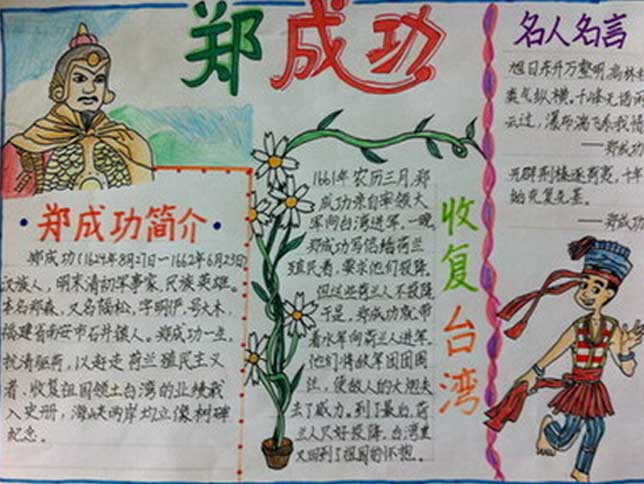 郑成功
郑成功简介
郑成功(1624年8月27日—1662年6月23日
汉族人,明末清初军事家,民族英雄。
本名郑森,又名福松,字明俨,号大木,
福建省南安市石井镇人。郑成功一生,
抗清驱荷,以赶走荷兰殖民主义
者、收复祖国领土台湾的业绩载
入史册,海峡两岸均立像树碑
纪念。
收复台湾
1661年农历三月,郑
成功亲自率领大
军向台湾进军。一晚,
郑成功写信给荷兰
殖民者,要求他们投降。
但这些荷兰人不投降
于是,郑成功就带
着水军向荷兰人进军。
他们将敌军团团围
住,使敌人的大炮失
去了威力。到了最后,荷
兰人只好投降,台湾重
又回到了祖国的怀抱。
名人名言
旭日东升万壑明,高林
类气纵横。千峰无语
云过,瀑布湍飞系我情
——郑成功
开辟荆榛逐荷夷,十年
始克复先基。
——郑成功